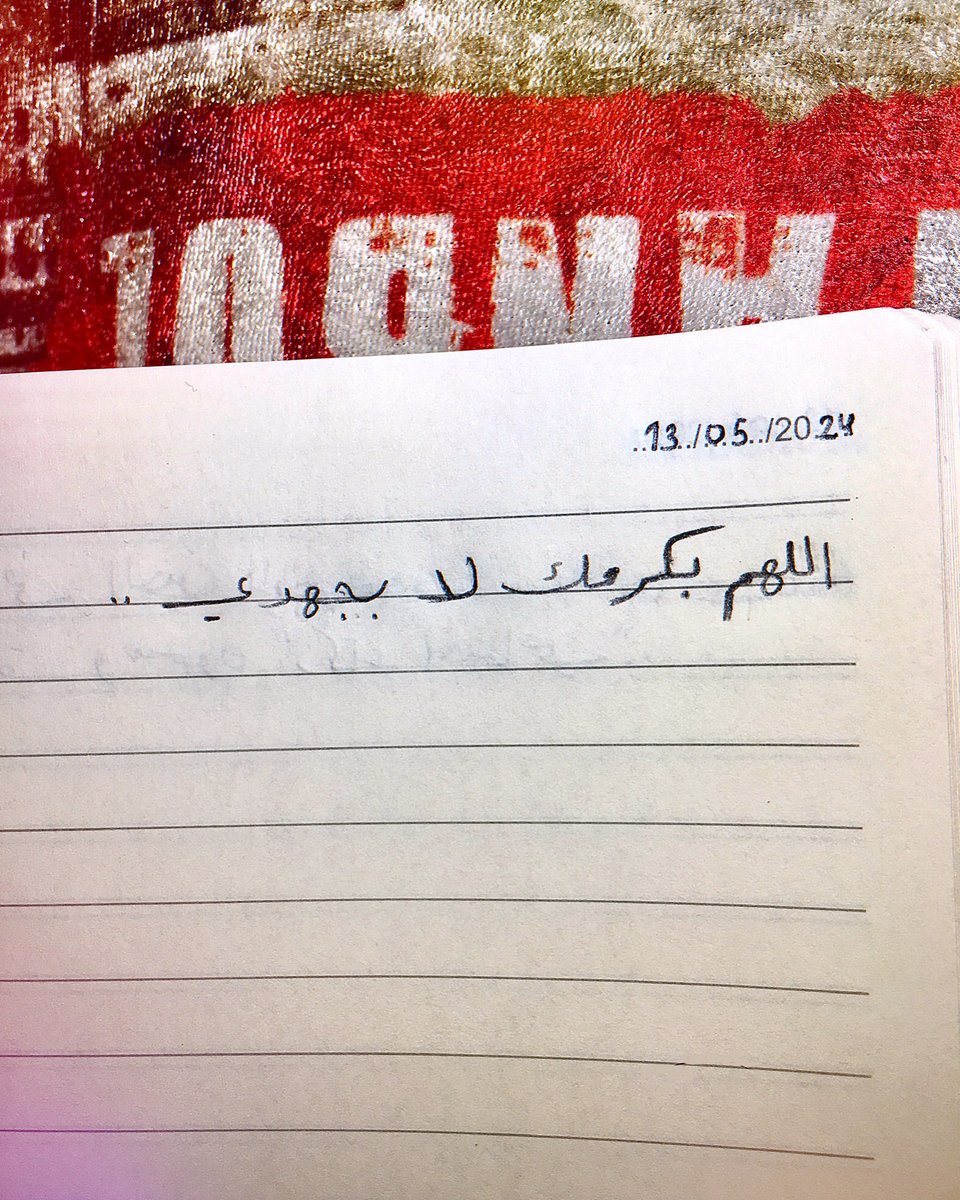 13/05/2024
اللهم بكرمك لا بجهدي ..